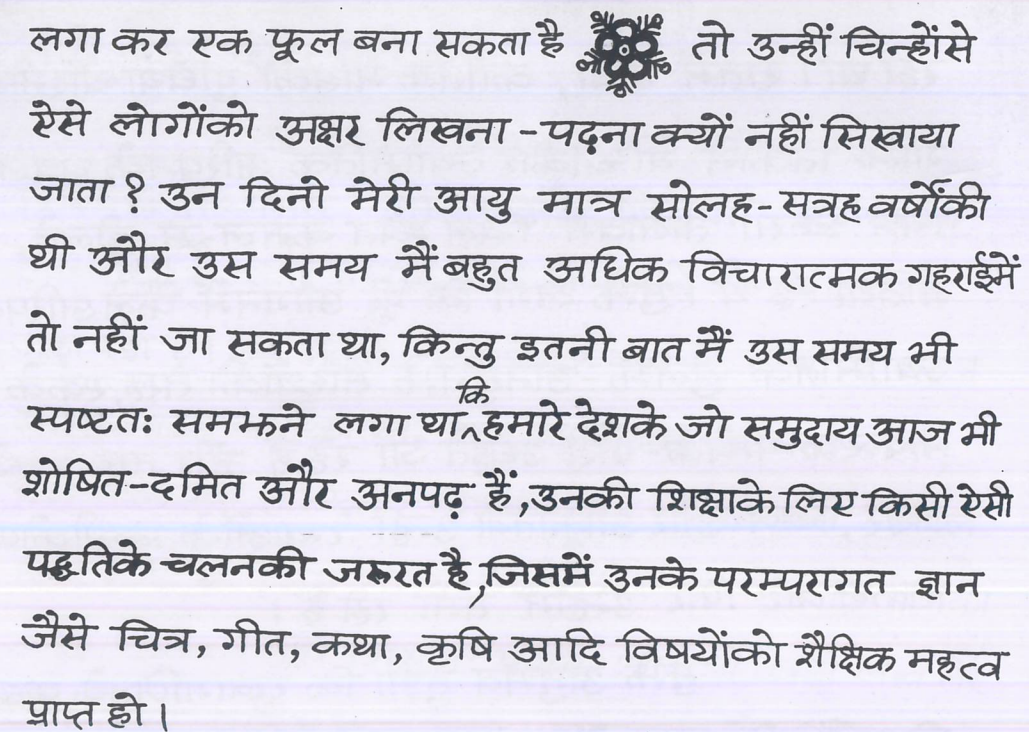 लगा कर एक फूल बना सकता है तो उन्हीं चिन्होंसे
ऐसे लोगोंको अक्षर लिखना-पढ़ना क्यों नहीं सिखाया
जाता? उन दिनो मेरी आयु मात्र सोलह-सत्रह वर्षोंकी
थी और उस समय मैं बहुत अधिक विचारात्मक गहराईमें
तो नहीं जा सकता था, किन्तु इतनी बात मैं उस समय भी
स्पष्टतः समझने लगा था कि हमारे देशके जो समुदाय आज भी
शोषित-दमित और अनपढ़ हैं, उनकी शिक्षाके लिए किसी ऐसी
पद्धतिके चलनकी जरूरत है, जिसमें उनके परम्परागत ज्ञान
जैसे चित्र, गीत, कथा, कृषि आदि विषयोंको शैक्षिक महत्व
प्राप्त हो।